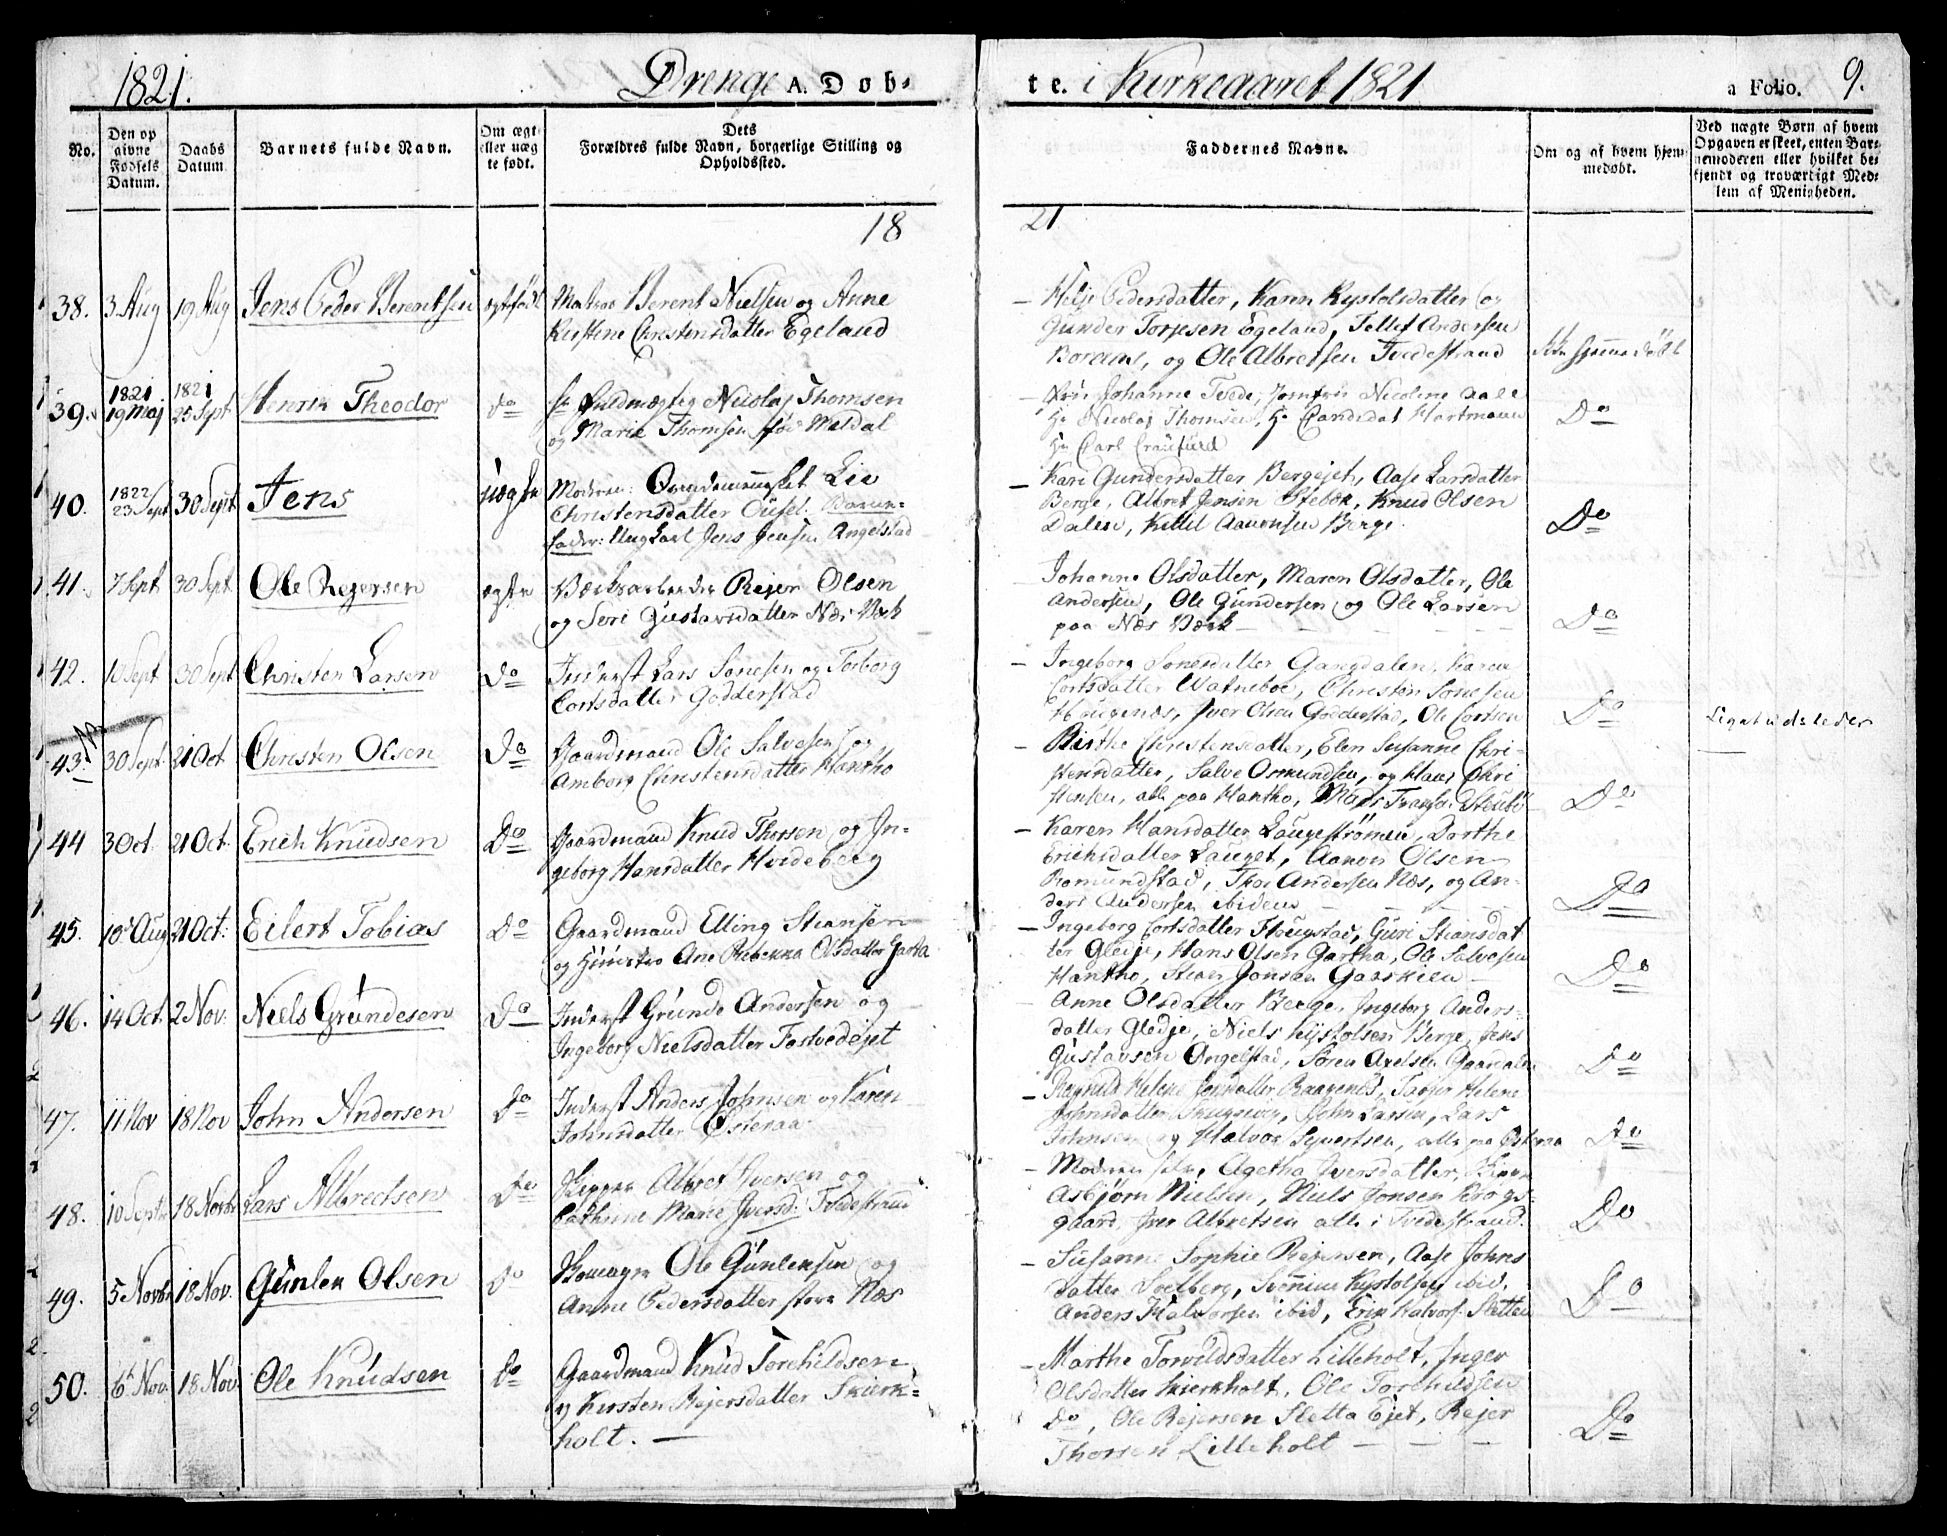 1821.
Drenge A. Døb-
te. i Kirkeaaret 1821
a Folio. 9.
No.
Den op
givne
Fødsels
Datum.
Daabs
Datum
Barnets fulde Navn.
Om ægte
eller uæg
te født.
Dets
Forældres fulde Navn, borgerlige Stilling og
Opholdssted.
Faddernes Navne.
Om og af hvem hjem-
medøbt.
Ved uægte Børn af hvem
Opgaven er skeet, enten Bar-
nemoderen eller hvilket be-
kjendt og troværdigt Med-
lem af Menigheden.
18
21
38. 3 Aug 19 Aug Jens Peder Berentsen ægtefødt
Matros Berent Nielsen og Anne
Kirstine Christensdatter Egeland
Helje Pedersdatter, Karen Kystolsdatter og
Gunder Torjesen Egeland, Tellef Andersen
Boraas, og Ole Albretsen Tvedestrand
Ikke hjemmedöbt
39. 1821 19 Maj 1821 25 Sept Henrik Theodor Do
Hr Fuldmægtig Nicolaj Thomsen
og Marie Thomsen fød Waldal
Fru Johanne Tvede, Jomfru Nicoline Aall
Hr Nicolaj Thomsen, Hr Candidat Hartmann
Hr Carl Craufurd
Do
40. 1822 23 Sept 30 Sept Jens uægte
Moderen: Qvindemennesket Lie
Christensdatter Ousel. Barne-
fader: Ungkarl Jens Jensen Angelstad
Kari Gundersdatter Bergejet, Aase Larsdatter
Berge, Albret Jensen Stebæk, Knud Olsen
Dalen, Kittil Aanonsen Berge.
Do
41. 7 Sept 30 Sept Ole Rejersen ægte
Værksarbeider Rejer Olsen
og Siri Gustavsdatter Næs Værk
Johanne Olsdatter, Maren Olsdatter, Ole
Andersen, Ole Gundersen og Ole Larsen
paa Næs Værk
Do
42. 10 Sept 30 Sept Christen Larsen Do
Inderst Lars Sonesen og Torborg
Cortsdatter Godderstad
Ingeborg Sonesdatter Gangdalen, Karen
Cortsdatter Watneboe, Christen Sonesen
Haugenæs, Iver Olsen Godderstad, Ole Cortsen
Do
43. 30 Sept. 21 Oct Christen Olsen Do
Gaardmand Ole Salvesen og
Amborg Christensdatter Hantho
Birthe Christensdatter, Elen Susanne Chri-
stensdatter, Salve Osmundsen, og Hans Chri
stensen, alle paa Hantho,
Do
44 3 Oct. 21 Oct. Erich Knudsen Do
Gaardmand Knud Thorsen og In-
geborg Hansdatter Hvideberg
Karen Hansdatter Laugestrømen, Dorthe
Erichsdatter Lauget, Aanon Olsen
Romundstad, Thor Andersen Næs, og An-
ders Andersen ibidem
Do
45. 10 Aug 21 Oct: Eilert Tobias Do
Gaardmand Elling Steansen
og Hustro Ane Rebekka Olsdatter Garta
Ingeborg Cortsdatter Haugstad, Guri Steansdat
ter Gledje, Hans Olsen Gartha, Ole Salvesen
Hantho, Stean Jonsen Gaaskilen
Do
46. 14 Oct. 2 Nov: Niels Grundesen Do
Inderst Grunde Andersen og
Ingeborg Nielsdatter Fostvedejet
Anne Olsdatter Berge, Ingeborg Anders-
datter Gledje, Niels Kystolsen Berge, Jens
Gustavsen Angelstad, Søren Axelsen
Do
47. 11 Nov 18 Nov John Andersen Do
Inderst Anders Johnsen og Karen
Johnsdatter Østeraa
Ragnild Helene Jensdatter Raagenæs, Taajer Helene
Johnsdatter, John Larsen, Lars
Johnsen og Halvor Syvertsen, alle paa Østeraa
Do
48. 10 Septr 18 Novbr Lars Albrectsen Do
Skipper Albret Iversen og
Cathrine Marie Iversd. Tvedestrand
Moderen selv, Agetha Iversdatter,
Asbjørn Nielsen, Niels Jonsen Krogs-
gaard, Iver Albretsen alle i Tvedestrand.
Do
49. 5 Novbr 18 Nov. Gunlen Olsen Do
Skomager Ole Gunlensen og
Anne Pedersdatter store Næs
Susanne Sophie Rejersen, Aase Johns
datter Soelberg, Kystolsen ibid.
Anders Halvorsen ibid, Erik Halvors. Sletten
Do
50. 6 Nov. 18 Nov. Ole Knudsen Do
Gaardmand Knud Torchildsen
og Kirsten Rejersdatter Skierk-
holt.
Marthe Torvildsdatter Lilleholt, Inger
Olsdatter Skierkholt, Ole Torchildsen
Do, Ole Rejersen Sletta Ejet, Rejer
Thorsen Lilleholt
Do